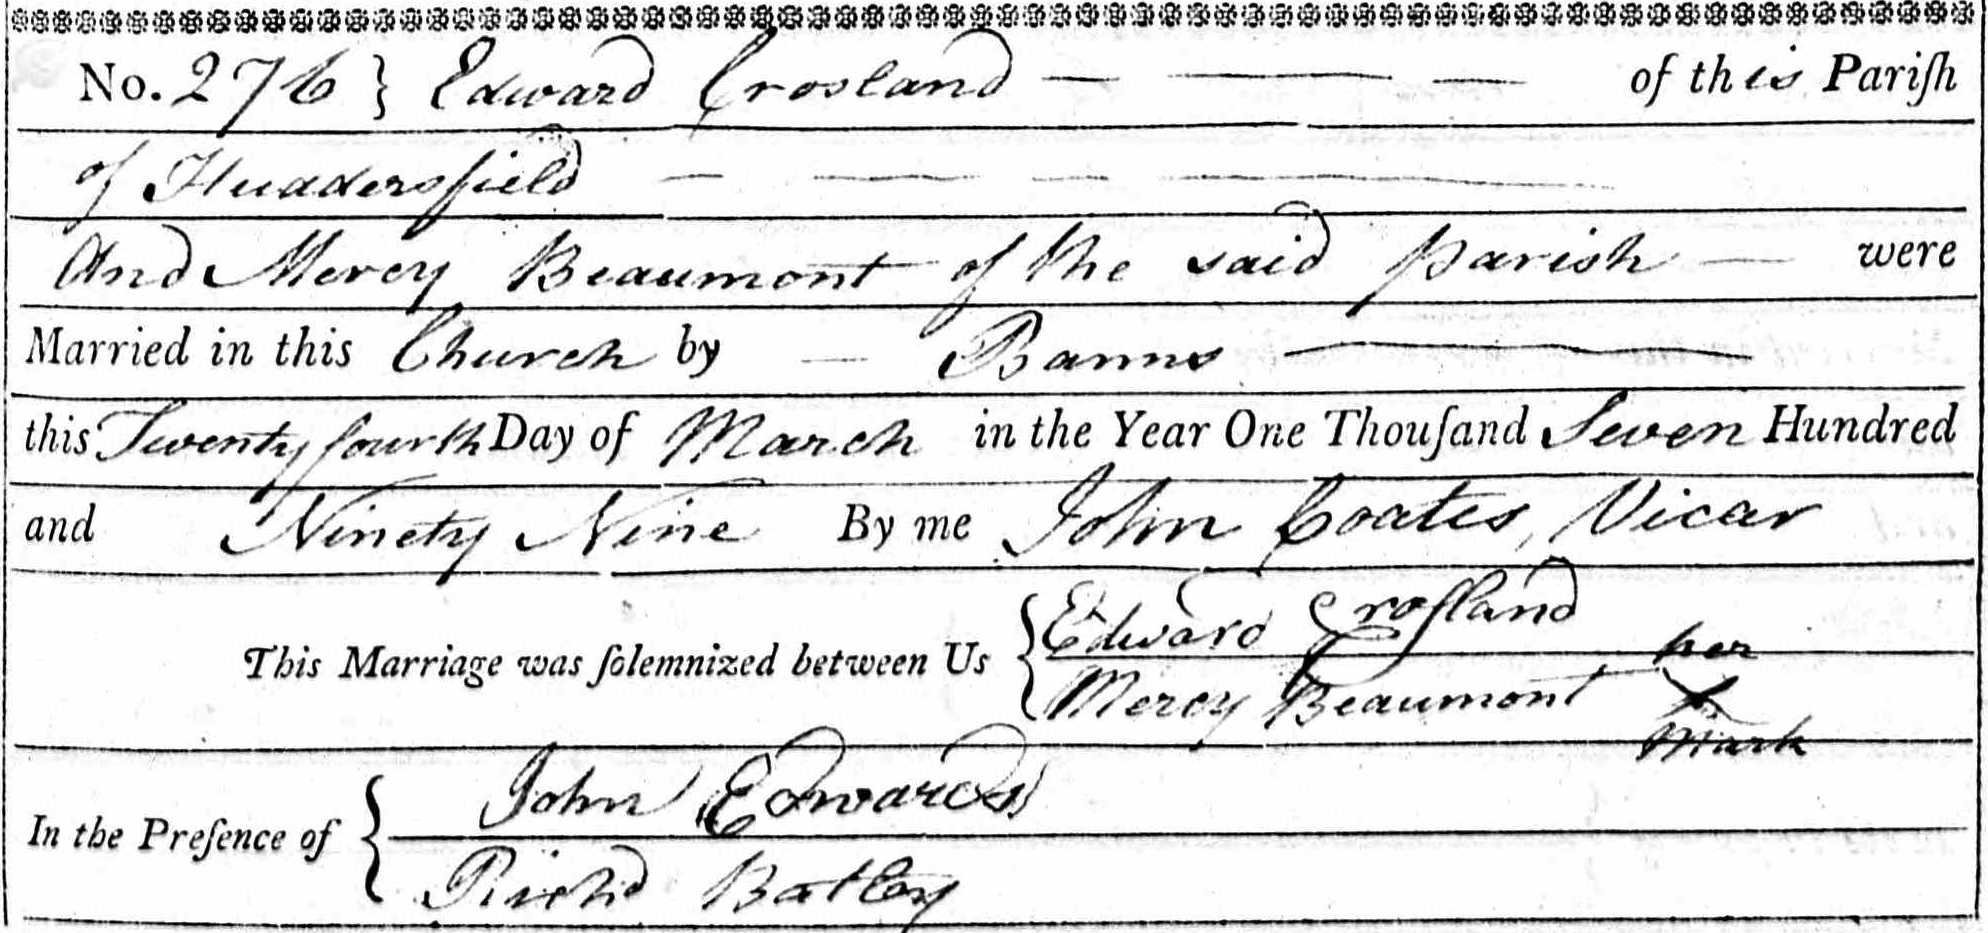 No. 276 } Edward Crosland — — — of this Pariſh
of Huddersfield — — — —
And Mercy Beaumont of the said parish — were
Married in this Church by — Banns —
this Twenty fourth Day of March in the Year One Thouſand Seven Hundred
and Ninety Nine By me John Coates, Vicar
This Marriage was ſolemnized between Us { Edward Croſland
Mercy Beaumont her X mark
In the Preſence of { John Edwards
Richd Batley